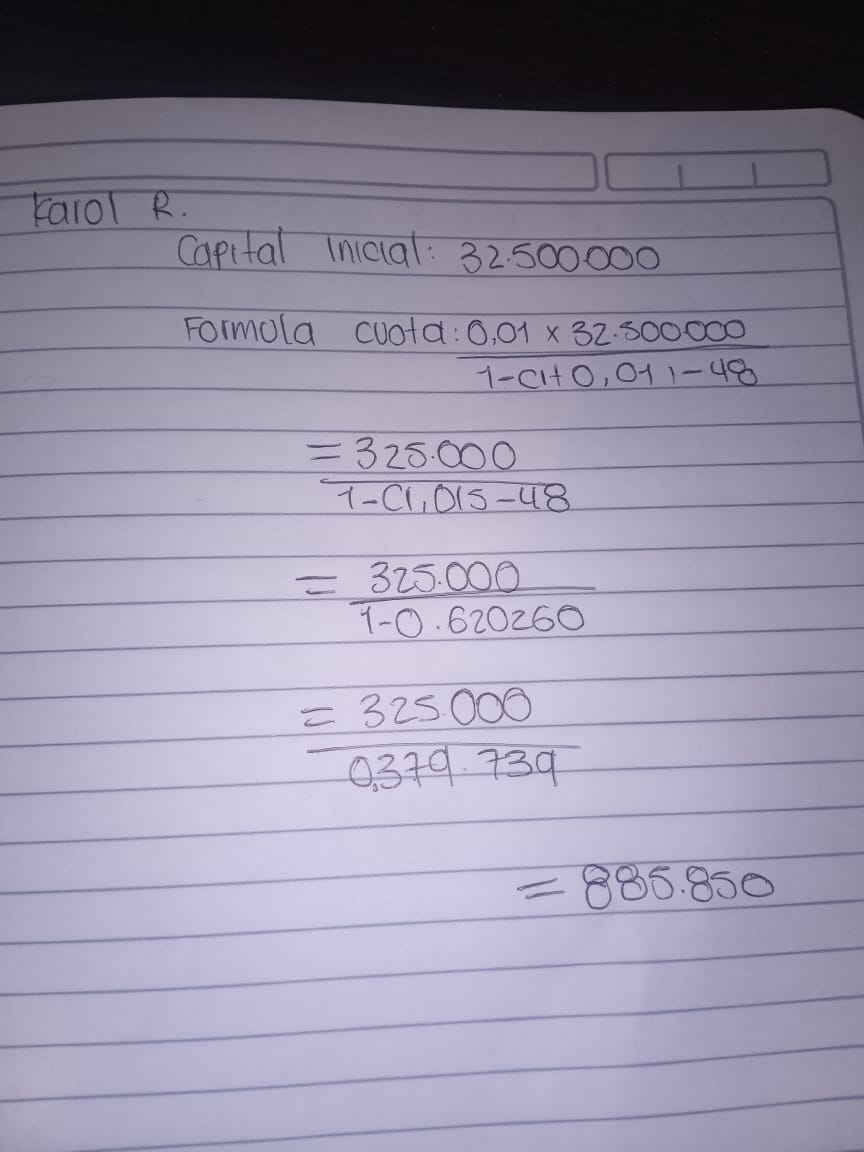 Karol R.
Capital Inicial: 32.500.000
Formola cuota: 0,01 x 32.500.000
1-C1+0,011-48
= 325.000
1-C1,015-48
= 325.000
1-0.620260
= 325.000
0,379.739
= 885.850